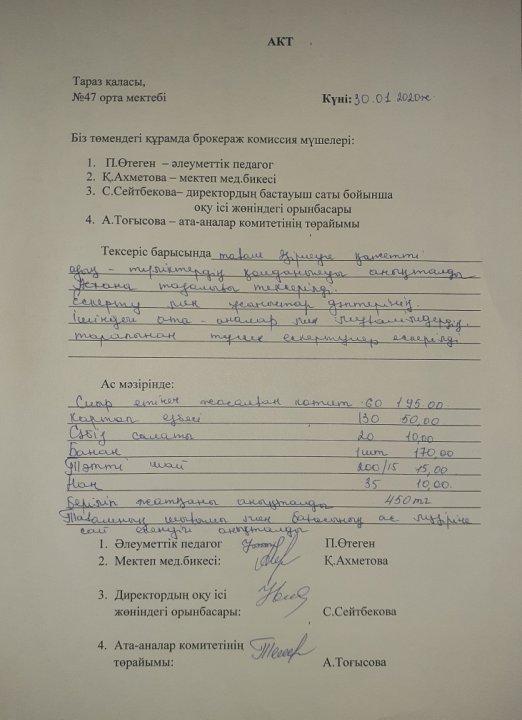 АКТ
Тараз қаласы,
№47 орта мектебі
Күні: 30.01 2020ж
Біз төмендегі құрамда брокераж комиссия мүшелері:
1. П.Өтеген – әлеуметтік педагог
2. Қ.Ахметова – мектеп мед.бикесі
3. С.Сейтбекова– директордың бастауыш саты бойынша
оқу ісі жөніндегі орынбасары
4. А.Тоғысова – ата-аналар комитетінің төрайымы
Тексеріс барысында тағам әзірлеуге қажетті
азық - түліктердің қолданылуы анықталды
Асхана тазалығы тексерілді.
Ескерту мен ұсыныстар дәптерінің
ішіндегі ата - аналар мен мұғалімдердің
тарапынан түскен ескертулер ескерілді
Ас мәзірінде:
Сиыр етінен жасалған котлет 60 195.00
Картоп езбесі 130 50,00
Сәбіз салаты 20 10,00
Банан 1шт 170,00
Тәтті шай 200/15 15,00
Нан 35 10,00.
Беріліп жатқаны анықталды 450тг
Тағамның шығымы мен бағасының ас мәзіріне
сай екендігі анықталды
1. Әлеуметтік педагог П.Өтеген
2. Мектеп мед.бикесі: Қ.Ахметова
3. Директордың оқу ісі
жөніндегі орынбасары: С.Сейтбекова
4. Ата-аналар комитетінің
төрайымы: А.Тоғысова